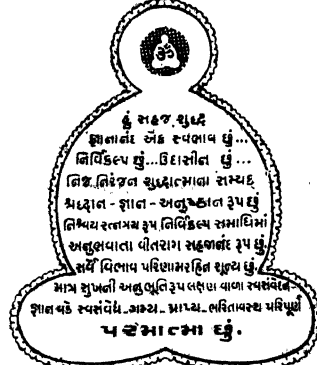 ૐ
હું સહજ શુદ્ધ
જ્ઞાનાનંદ એક સ્વભાવ છું...
નિર્વિકલ્પ છું...ઉદાસીન છું...
નિજ નિરંજન શુદ્ધાત્માના સમ્યક્
શ્રદ્ધાન - જ્ઞાન - અનુષ્ઠાન રૂપ છું
નિશ્ચયરત્નત્રય રૂપ નિર્વિકલ્પ સમાધિમાં
અનુભવાતા વીતરાગ સહજાનંદ રૂપ છું.
સર્વ વિભાવ પરિણામરહિત શૂન્ય છું.
માત્ર સુખની અનુભૂતિરૂપ લક્ષણ વાળા સ્વસંવેદન-
જ્ઞાન વડે સ્વસંવેદ્ય-ગમ્ય - પ્રાપ્ય - ભરિતાવસ્થ પરિપૂર્ણ
પરમાત્મા છું.